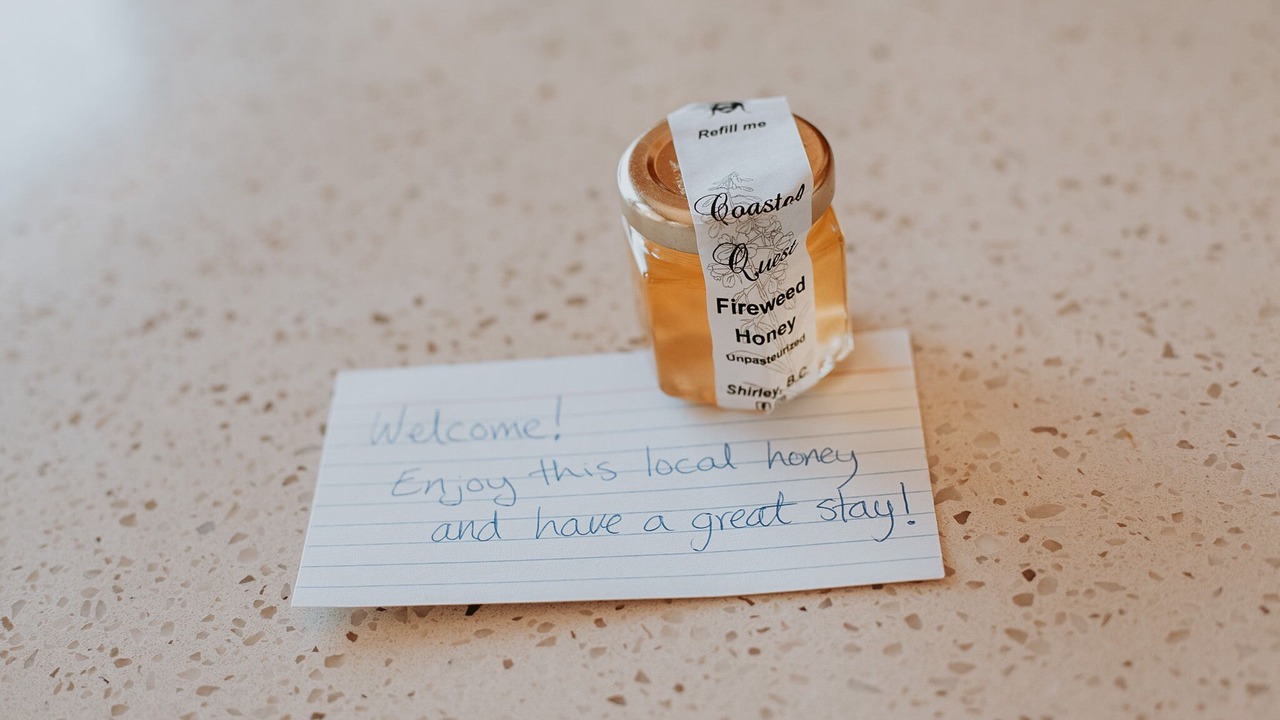 Refill me
Coastal
Quest
Fireweed
Honey
Unpasteurized
Shirley, B.C.
Welcome!
Enjoy this local honey
and have a great stay!